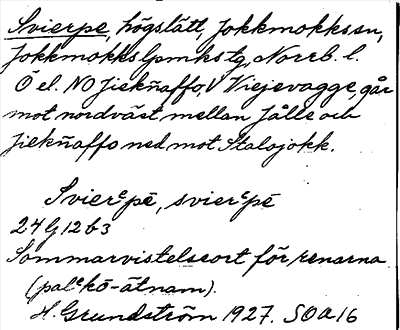 Svierpe, högslätt, Jokkmokks sn,
Jokkmokks lpmks tg, Norrb. l.
Ö el. NO Jiekñaffo, V Viejevagge, går
mot nordväst mellan Jålle och
Jiekñaffo ned mot Stalojokk.
Svierᵉpē, svierᵉpē
24G12b3
Sommarvistelseort för renarna
(palᵉkō-ätnam).
H. Grundström 1927. SOA 16